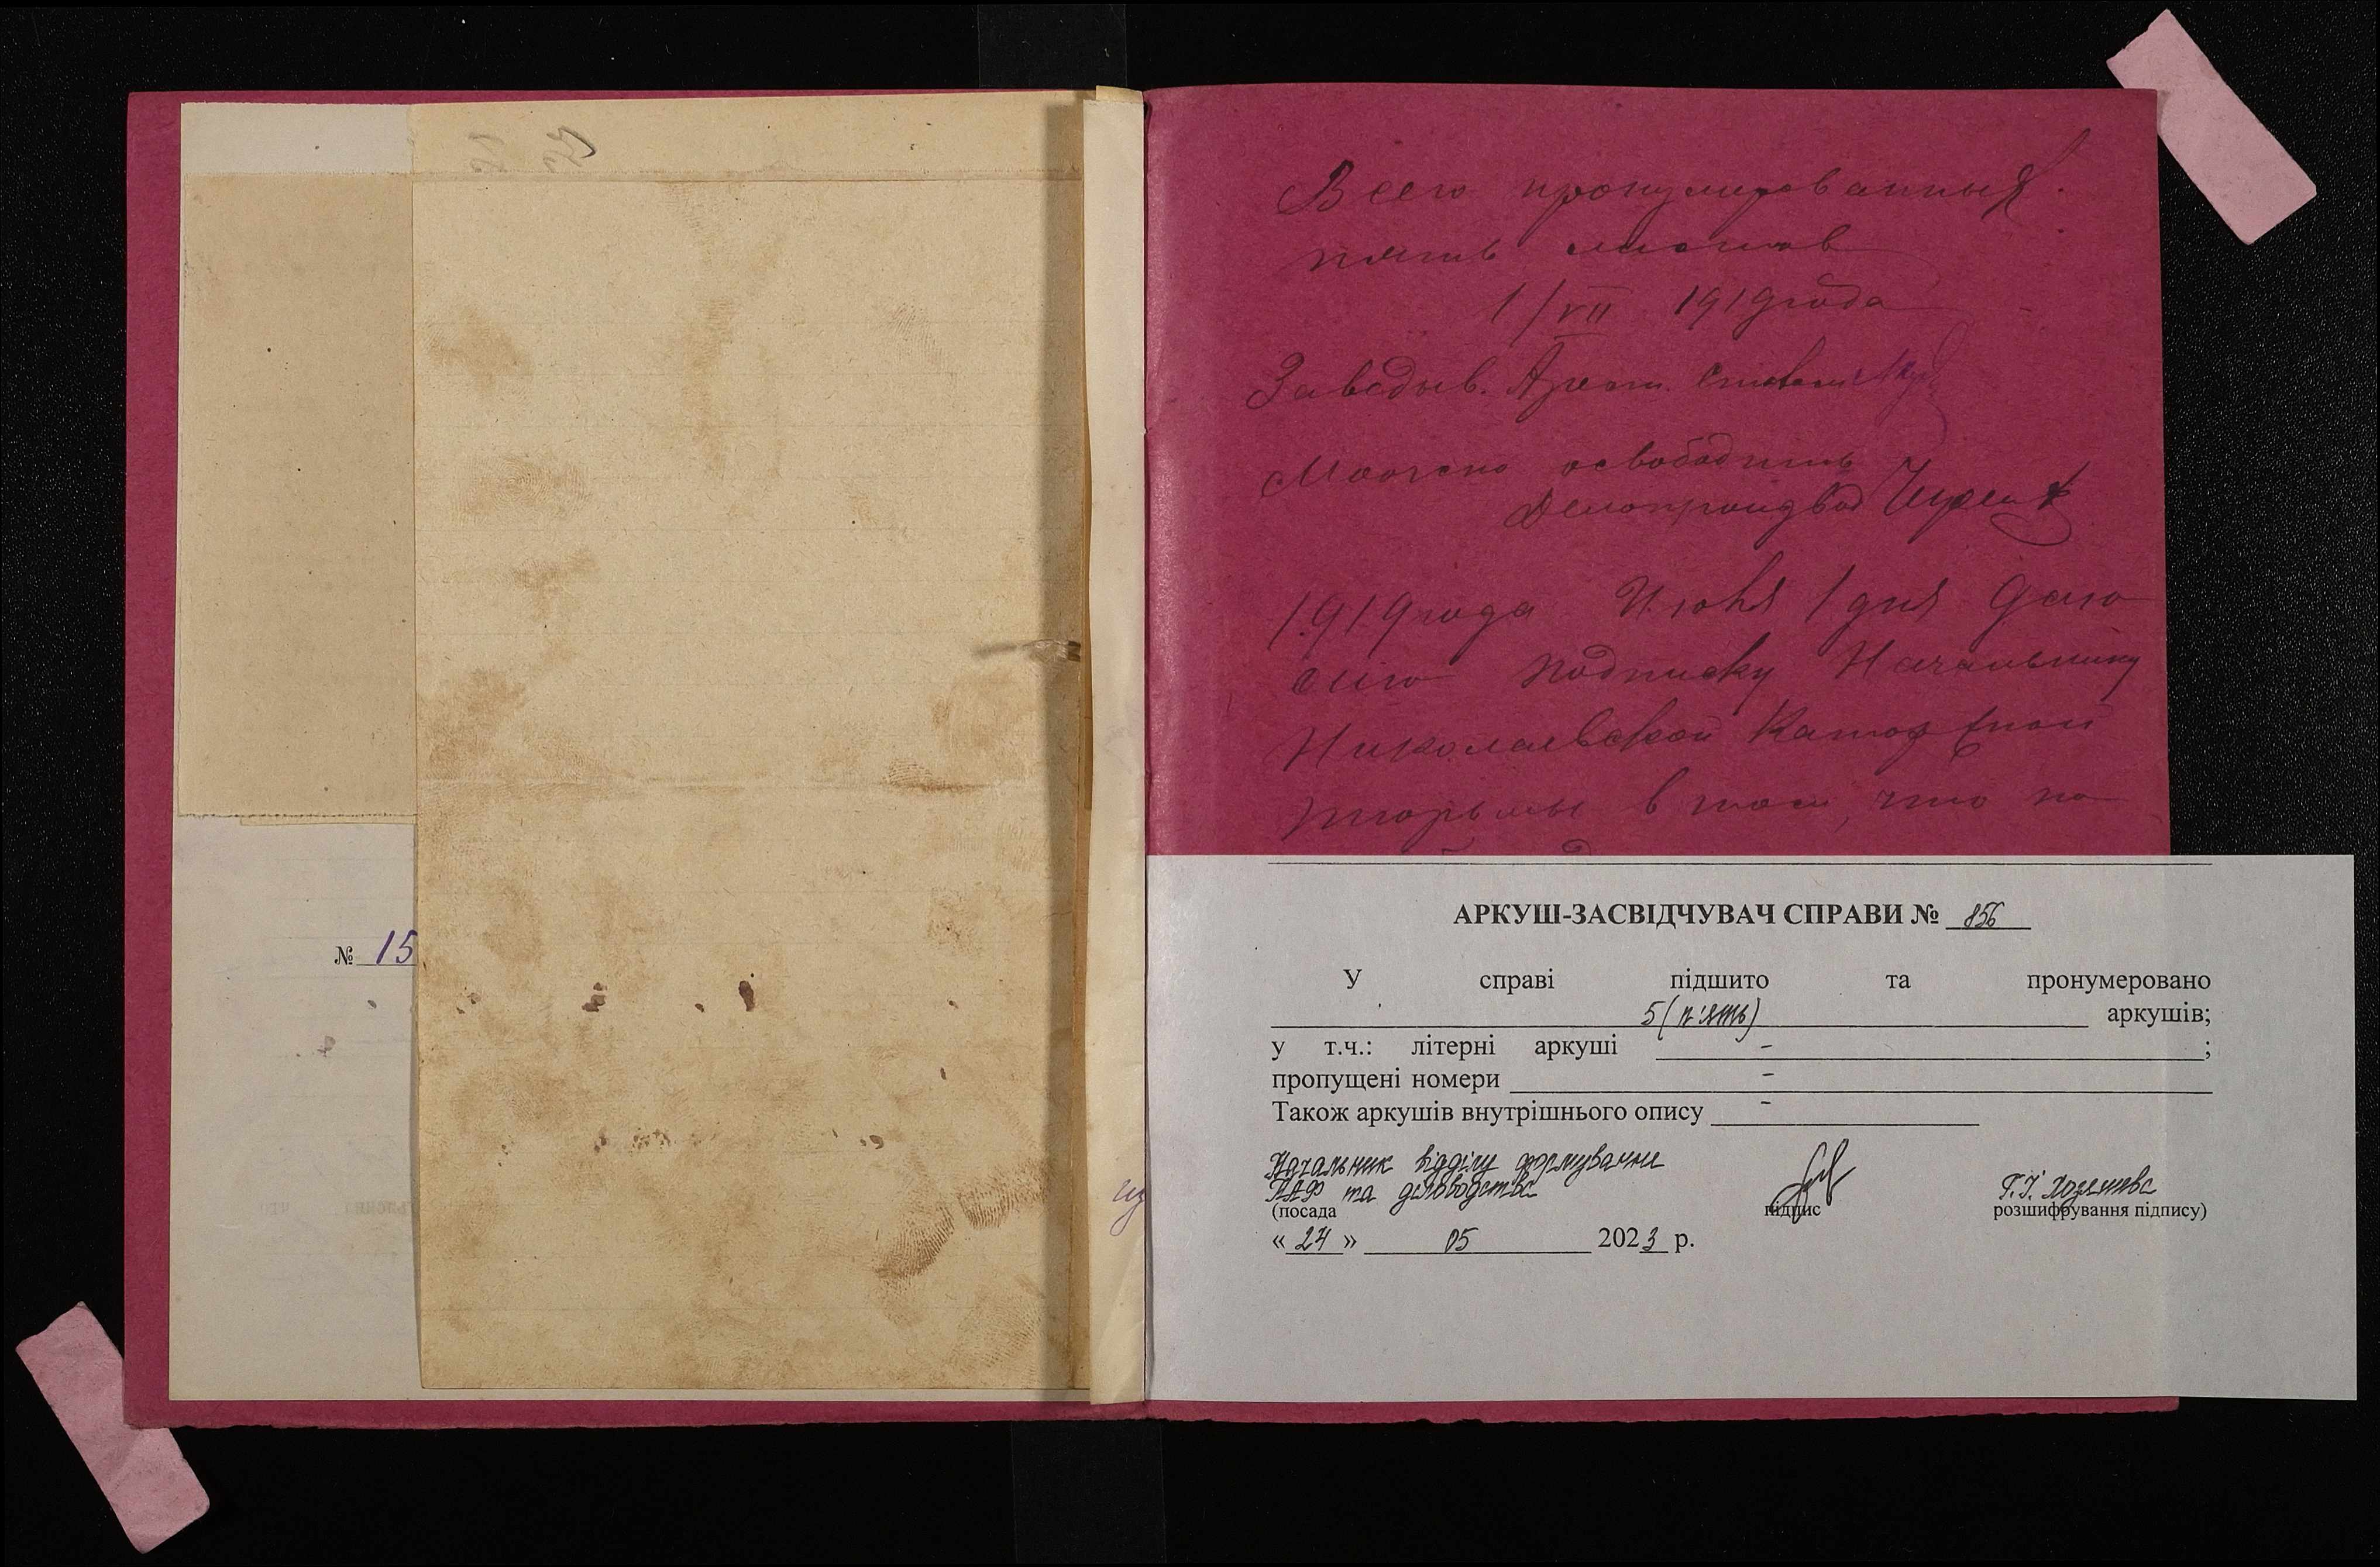 № 15
Всего пронумерованных
пять листов
1/VII 1919 года
Заведыв. Арест. столом
Можно освободить
Делопроизвод
1919 года Июля 1 дня даю
сию подписку Начальнику
Николаевской Каторжной
тюрьмы в том, что по
АРКУШ-ЗАСВІДЧУВАЧ СПРАВИ № 856
У справі підшито та пронумеровано
5 (п'ять) аркушів;
у т.ч.: літерні аркуші - ;
пропущені номери -
Також аркушів внутрішнього опису -
Начальник відділу формування
НАФ та діловодства
(посада підпис розшифрування підпису)
« 24 » 05 2023 р.